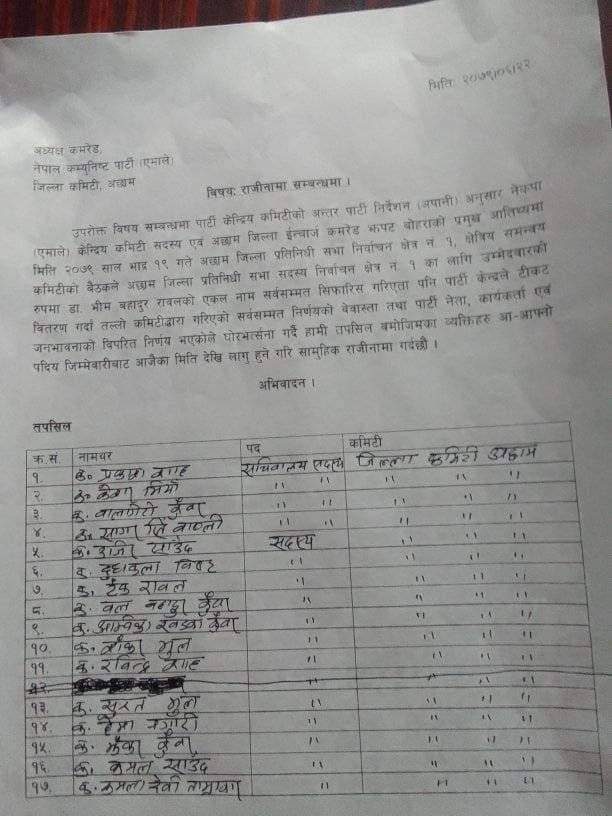 मिति: २०७९।०६।२२
अध्यक्ष कमरेड,
नेपाल कम्युनिष्ट पार्टी (एमाले)
जिल्ला कमिटी, अछाम
विषय: राजीनामा सम्बन्धमा ।
उपरोक्त विषय सम्बन्धमा पार्टी केन्द्रिय कमिटीको अन्तर पार्टी निर्देशन (अपानी) अनुसार नेकपा
(एमाले) केन्द्रिय कमिटी सदस्य एवं अछाम जिल्ला ईन्चार्ज कमरेड झपट बोहराको प्रमुख आतिथ्यमा
मिति २०७९ साल भाद्र १९ गते अछाम जिल्ला प्रतिनिधी सभा निर्वाचन क्षेत्र नं. १, क्षेत्रिय समन्वय
कमिटीको बैठकले अछाम जिल्ला प्रतिनिधी सभा सदस्य निर्वाचन क्षेत्र नं. १ का लागि उम्मेदवारको
रुपमा डा. भीम बहादुर रावलको एकल नाम सर्वसम्मत सिफारिस गरिएता पनि पार्टी केन्द्रले टीकट
वितरण गर्दा तल्लो कमिटीद्वारा गरिएको सर्वसम्मत निर्णयको वेवास्ता तथा पार्टी नेता, कार्यकर्ता एवं
जनभावनाको विपरित निर्णय भएकोले घोरभार्त्सना गर्दै हामी तपसिल बमोजिमका व्यक्तिहरु आ-आफ्नो
पदिय जिम्मेबारीबाट आजैका मिति देखि लागु हुने गरि सामुहिक राजीनामा गर्दछौ ।
अभिवादन ।
तपसिल
क्र.सं. नामथर पद कमिटी
१. क. प्रकाश शाह सचिवालय सदस्य जिल्ला कमिटी अछाम
२. " " " " "
३. क. कुँवर " " " " "
४. " " " " "
५. क. साउँद सदस्य " " "
६. क. " " " "
७. क. टेक रावल " " " "
८. क. कुँवर " " " "
९. क. खडका कुँवर " " " "
१०. क. भुल " " " "
११. क. रविन्द्र शाह " " " "
१२. " " " "
१३. क. सुरत भुल " " " "
१४. क. " " " "
१५. क. कुँवर " " " "
१६. क. कमल साउँद " " " "
१७. क. कमला देवी " " " "